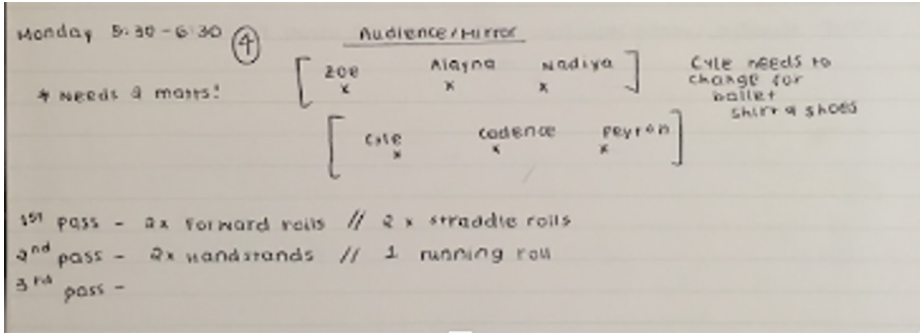 Monday 5:30-6:30 ④
Audience/Mirror
* Needs 2 matts!
[ Zoe Alayna Nadiya ]
x x x
[ Cyle Cadence Peyton ]
x x x
Cyle needs to
change for
ballet
shirt & shoes
1st pass - 2x forward rolls // 2 x straddle rolls
2nd pass - 2x handstands // 1 running roll
3rd pass -